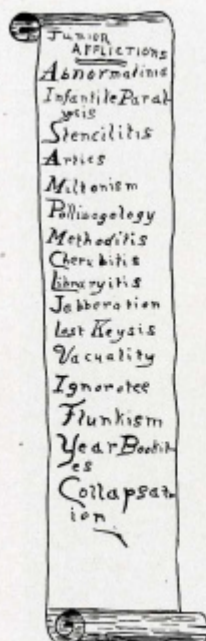 JUNIOR
AFFLICTIONS
Abnormalinis
Infantile Paral-
ysis
Stencilitis
Artics
Miltonism
Polliwogology
Methoditis
Cherubitis
Libraryitis
Jabberation
Lost Keysis
Vacuality
Ignorotee
Flunkism
Year Bookit-
es
Collapsat-
ion